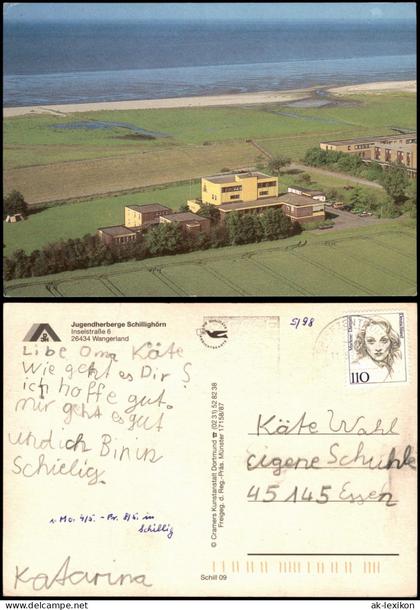 Jugendherberge Schillighörn
Inselstraße 6
26434 Wangerland
Libe Oma Käte
Wie geht es Dir ?
ich hoffe gut.
mir geht es gut
und ich Bin in
Schielig.
v. Mo. 4/5. - Fr. 8/5. in
Schillig
Katarina
© Cramers Kunstanstalt Dortmund ☎ (02 31) 52 82 38
Freigeg. d. Reg.-Präs. Münster 17158/87
Schill 09
5/98
110
Käte Wahl
eigene Schuhle
45145 Essen
© ak-lexikon.de